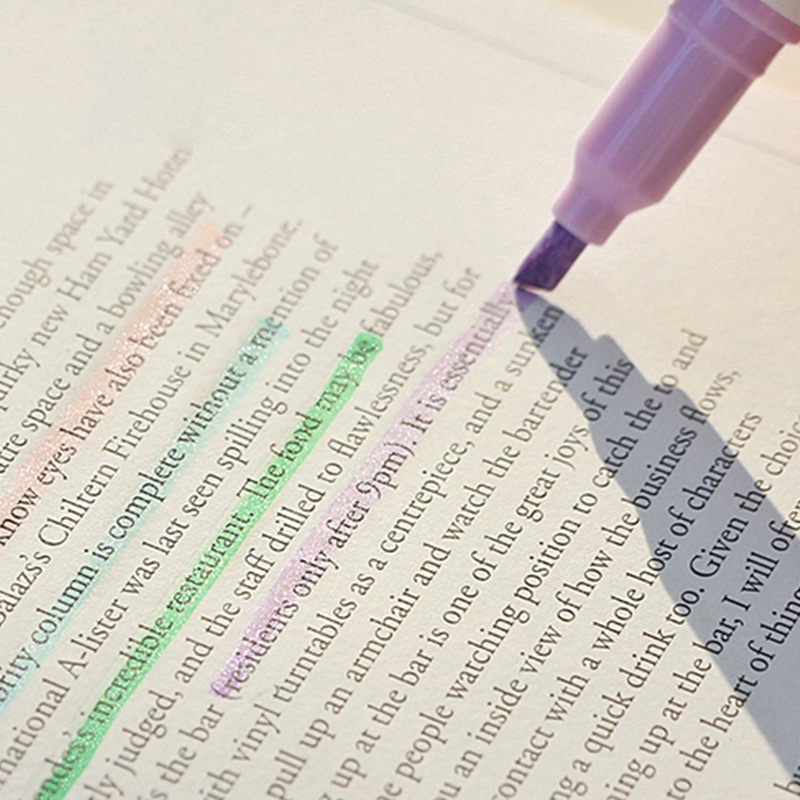 enough space in
quirky new Ham Yard Hotel
space and a bowling alley
know eyes have also been fixed on –
Balazs's Chiltern Firehouse in Marylebone.
column is complete without a mention of
A-lister was last seen spilling into the night
incredible restaurant. The food may be fabulous,
judged, and the staff drilled to flawlessness, but for
is the bar (residents only after 9pm). It is essentially
with vinyl turntables as a centrepiece, and a sunken
pull up an armchair and watch the bartender
up at the bar is one of the great joys of this
people watching position to catch the to and
an inside view of how the business flows,
contact with a whole host of characters
a quick drink too. Given the
up at the bar, I will often
to the heart of things